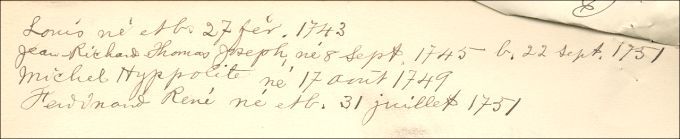 Louis né et b. 27 fév. 1743
Jean-Richard Thomas Joseph, né 8 Sept. 1745 b. 22 sept. 1751
Michel Hyppolite né 17 août 1749
Ferdinand René né et b. 31 juillet 1751